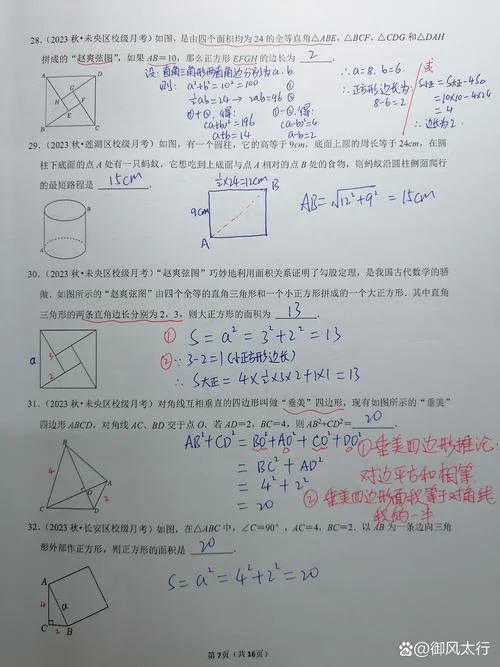 28.(2023 秋•未央区校级月考)如图,是由四个面积均为 24 的全等直角△ABE、△BCF、△CDG 和△DAH
拼成的“赵爽弦图”,如果 AB=10,那么正方形 EFGH 的边长为 2 .
设:直角三角形两直角边分别为 a、b.
则: a²+b²=10²=100 ①
½ab=24→2ab=96 ②
①+②,得:
(a+b)²=196
a+b=14
①-②,得:
(a-b)²=4
a-b=2
∴a=8,b=6.
∴正方形边长为:
8-6=2
或
=10×10-4×24
=4
∴边长为2.
29.(2023 秋•莲湖区校级月考)如图,有一个圆柱,它的高等于 9cm,底面上圆的周长等于 24cm,在圆
柱下底面的点 A 处有一只蚂蚁,它想吃到上底面与点 A 相对的点 B 处的食物,则蚂蚁沿圆柱侧面爬行
的最短路程是 15cm .
½×24=12cm
B
9cm
A
AB=√12²+9² =15cm
B
A
30.(2023 秋•未央区校级月考)“赵爽弦图”巧妙地利用面积关系证明了勾股定理,是我国古代数学的骄
傲.如图所示的“赵爽弦图”由四个全等的直角三角形和一个小正方形拼成的一个大正方形.其中直角
三角形的两条直角边长分别为 2,3,则大正方形的面积为 13 .
① S=a²=3²+2²=13
②∵3-2=1(小正方形边长)
∴S大正=4×½×3×2+1×1=13
a
3
2
31.(2023 秋•未央区校级月考)对角线互相垂直的四边形叫做“垂美”四边形,现有如图所示的“垂美”
四边形 ABCD,对角线 AC、BD 交于点 O.若 AD=2,BC=4,则 AB²+CD²= 20 .
AB²+CD²=BO²+AO²+CO²+DO²
=BC²+AD²
=4²+2²
=20
①垂美四边形推论:
对边平方和相等
②垂美四边形面积等于对角线
乘积的一半
4
2
32.(2023 秋•长安区校级月考)如图,在△ABC 中,∠C=90°,AC=4,BC=2.以 AB 为一条边向三角
形外部作正方形,则正方形的面积是 20 .
S=a²=4²+2²=20
A
4
a
C
2
B
第7页(共16页)
@御风太行